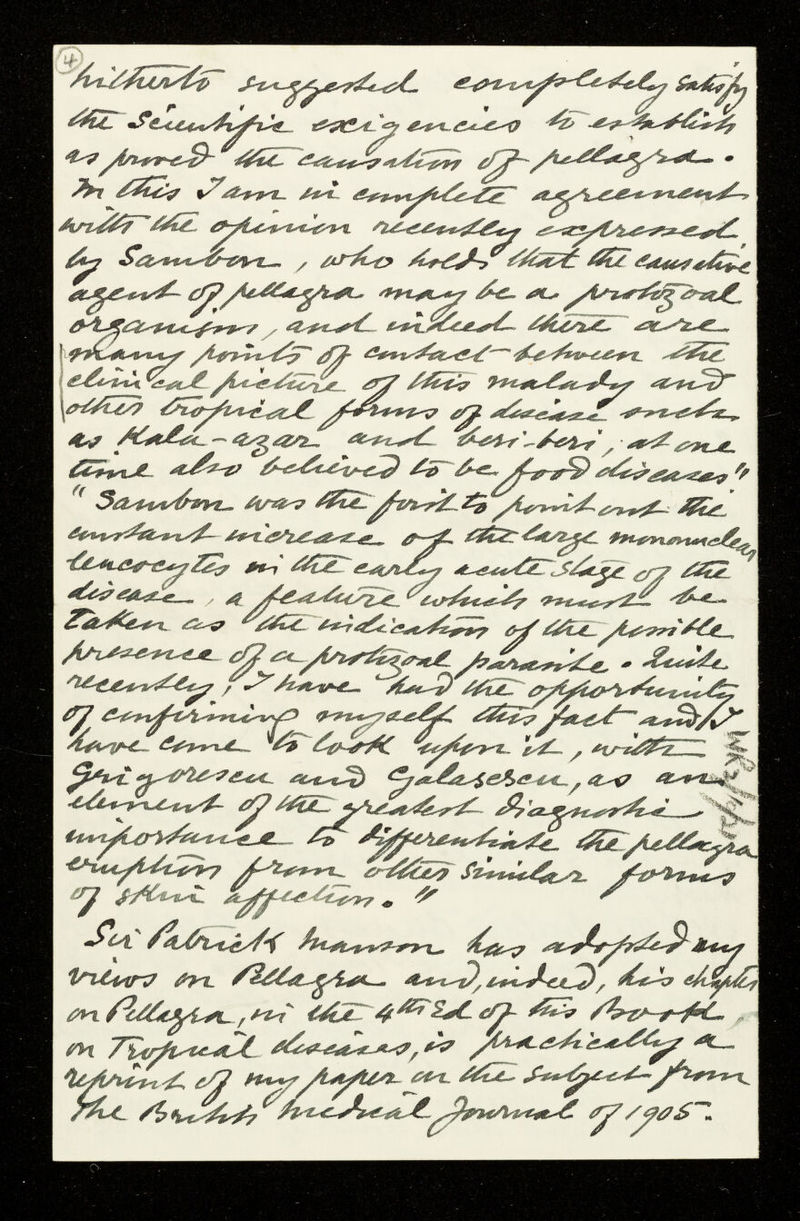 4
hitherto suggested completely satisfy
the scientific exigencies to establish
as proved the causation of pellagra.
In this I am in complete agreement
with the opinion recently expressed
by Sambon, who holds that the causative
agent of pellagra may be a protozoal
organism, and indeed there are
many points of contact between the
clinical picture of this malady and
other tropical forms of disease such
as Kala-azar and beri-beri, at one
time also believed to be food diseases"
"Sambon was the first to point out the
constant increase of the large mononuclear
leucocytes in the early acute stage of the
disease, a feature which must be
taken as the indication of the possible
presence of a protozoal parasite. Quite
recently, I have had the opportunity
of confirming myself this fact and I
have come to look upon it, with
Grigorescu and Galasescu, as an
element of the greatest diagnostic
importance to differentiate the pellagra
eruption from other similar forms
of skin affection."
Sir Patrick Manson has adopted my
views on Pellagra and, indeed, his chapter
on Pellagra, in the 4th Ed of his Book
on Tropical diseases, is practically a
reprint of my paper on the subject from
the British Medical Journal of 1905.